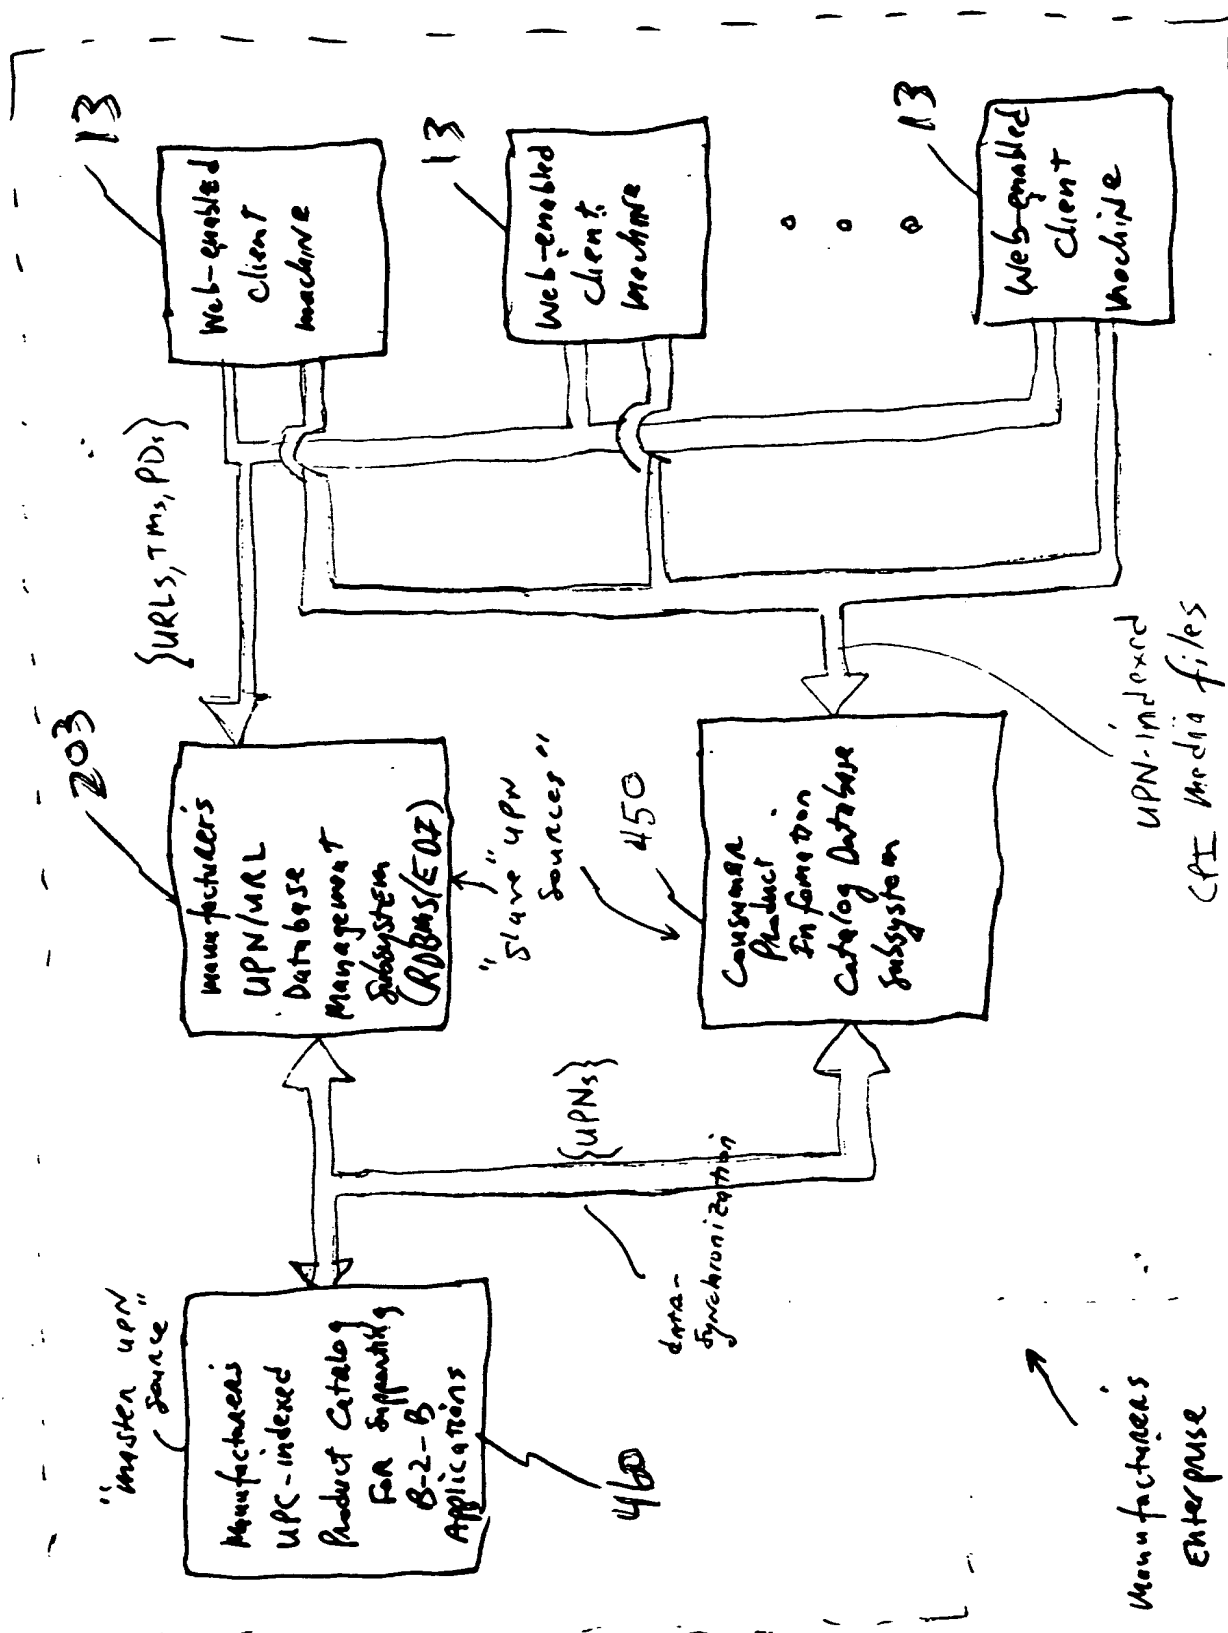 "master UPN
source"
Manufacturer's
UPC-indexed
Product Catalog
For Supporting
B-2-B
Applications
460
data-
synchronization
{UPNs}
203
manufacturer's
UPN/URL
Database
Management
Subsystem
(RDBMS/EDI)
"Slave" UPN
Sources"
450
Consumer
Product
Information
Catalog Database
Subsystem
{URLs, TMs, PDs}
UPN-indexed
CPI media files
13
Web-enabled
client
machine
13
Web-enabled
client
machine
13
Web-enabled
client
machine
Manufacturer's
Enterprise